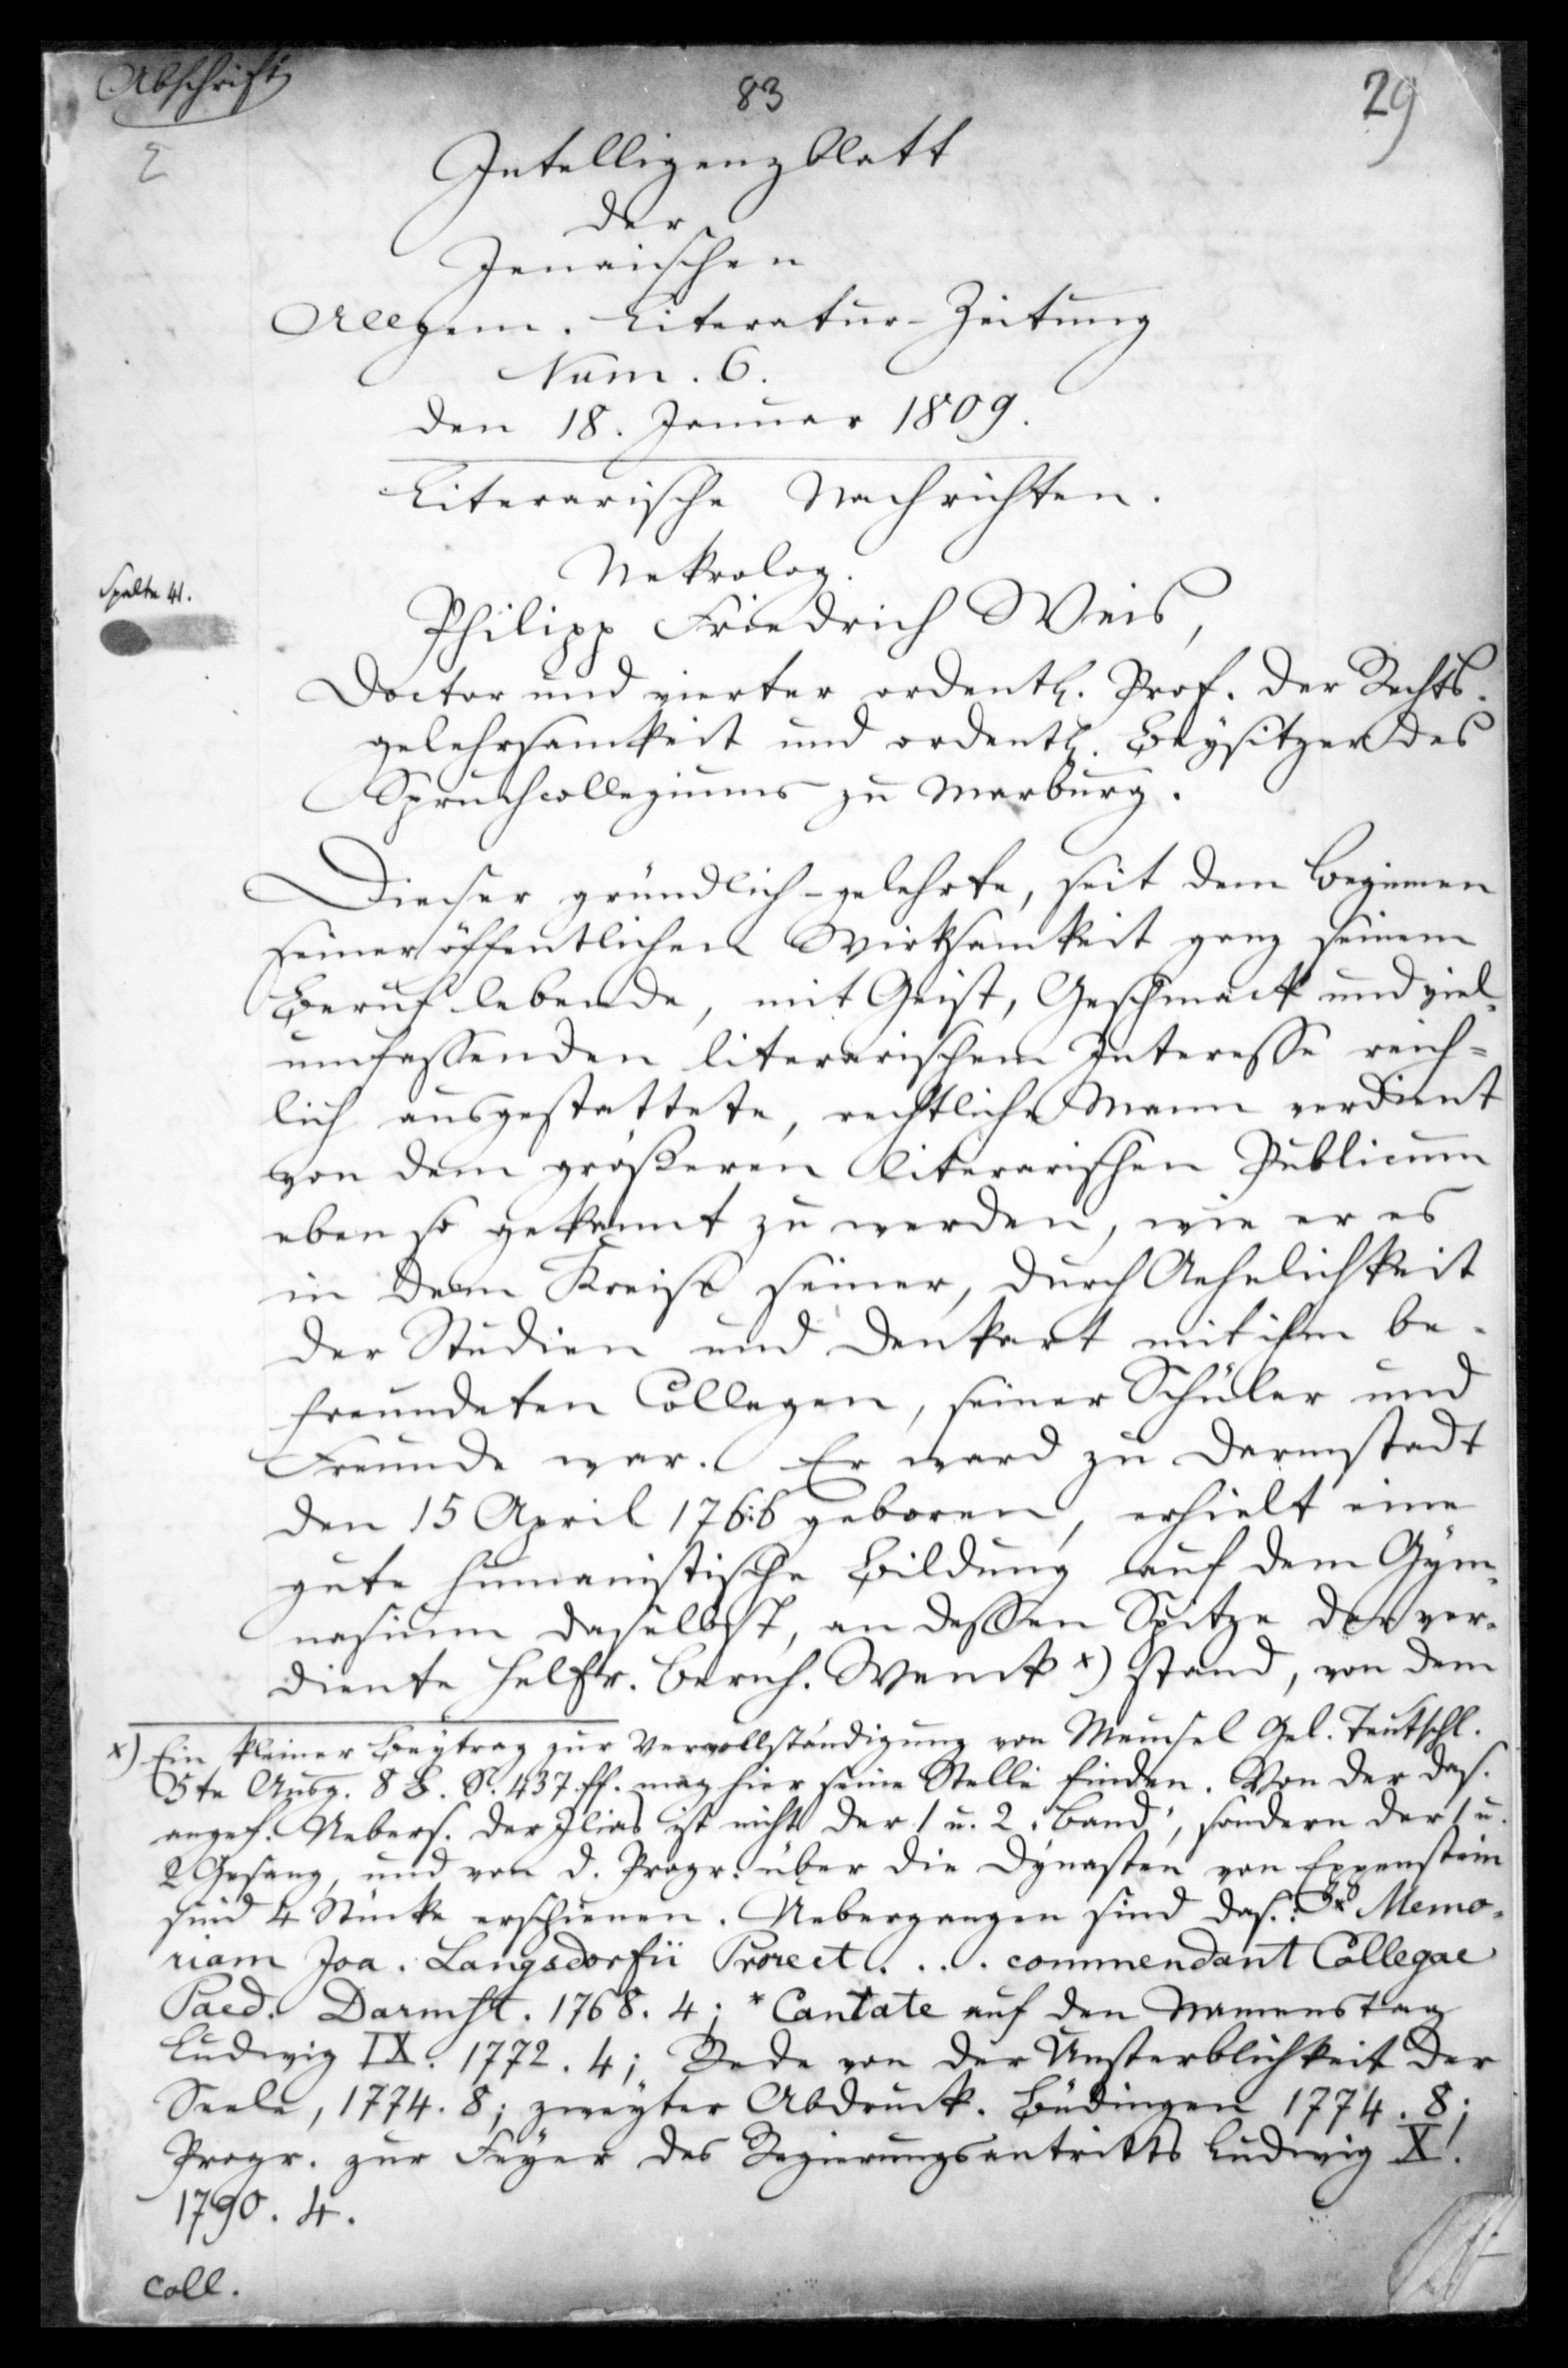 Abschrift
83
29
Intelligenzblatt
der
Jenaischen
Allgem. Literatur-Zeitung
Num. 6.
den 18. Januar 1809.
Literarische Nachrichten.
Nekrolog.
Spalte 41.
Philipp Friedrich Weis,
Doctor und vierter ordentl. Prof. der Rechts-
gelehrsamkeit und ordentl. Beysitzer des
Spruchcollegiums zu Marburg.
Dieser gründlich-gelehrte, seit dem Beginnen
seiner öffentlichen Wirksamkeit ganz seinem
Beruf lebende, mit Geist, Geschmack und viel-
umfassenden literarischem Interesse reich-
lich ausgestattete, rechtliche Mann verdient
von dem größeren literarischen Publicum
eben so gekannt zu werden, wie er es
in dem Kreise seiner, durch Aehnlichkeit
der Studien und Denkart mit ihm be-
freundeten Collegen, seiner Schüler und
Freunde war. Er ward zu Darmstadt
den 15 April 1766 geboren, erhielt eine
gute humanistische Bildung auf dem Gym-
nasium daselbst, an dessen Spitze der ver-
diente Helfr. Bernh. Wenck x) stand, von dem
x) Ein kleiner Beytrag zur Vervollständigung von Meusel Gel. Teutschl.
5te Ausg. 8 B. S. 437 ff. mag hier seine Stelle finden. Von der das.
angef. Uebers. der Ilias ist nicht der 1 u. 2 „Band“, sondern der 1 u.
2 Gesang, und von d. Progr. über die Dynasten von Eppenstein
sind 4 Stücke erschienen. Uebergangen sind das.: Memo-
riam Joa. Langsdorfii Prorect. . . . commendant Collegae
Paed. Darmst. 1768. 4; * Cantate auf den Namenstag
Ludwig IX. 1772. 4; Rede von der Unsterblichkeit der
Seele, 1774. 8; zweyter Abdruck. Büdingen 1774. 8;
Progr. zur Feyer des Regierungsantritts Ludwig X.
1790. 4.
coll.